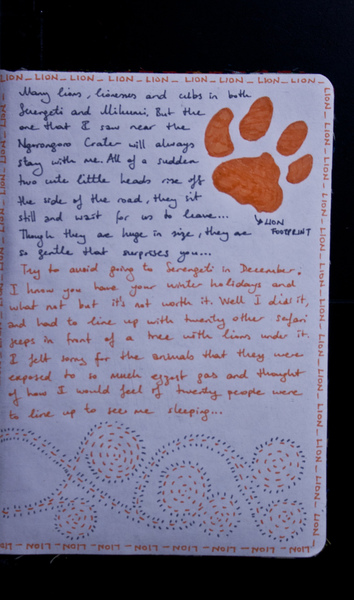 LION _ LION _ LION _ LION _ LION _ LION _ LION _ LION _ LION
Many lions, lionesses and cubs in both
Serengeti and Mikumi. But the
one that I saw near the
Ngorongoro Crater will always
stay with me. All of a sudden
two cute little heads rise off
the side of the road, they sit
still and wait for us to leave...
Though they are huge in size, they are
so gentle that surprises you...
LION
FOOTPRINT
Try to avoid going to Serengeti in December.
I know you have your winter holidays and
what not but it's not worth it. Well I did it,
and had to line up with twenty other safari
jeeps in front of a tree with lions under it.
I felt sorry for the animals that they were
exposed to so much egzost gas and thought
of how I would feel if twenty people were
to line up to see me sleeping...
LION _ LION _ LION _ LION _ LION _ LION _ LION _ LION